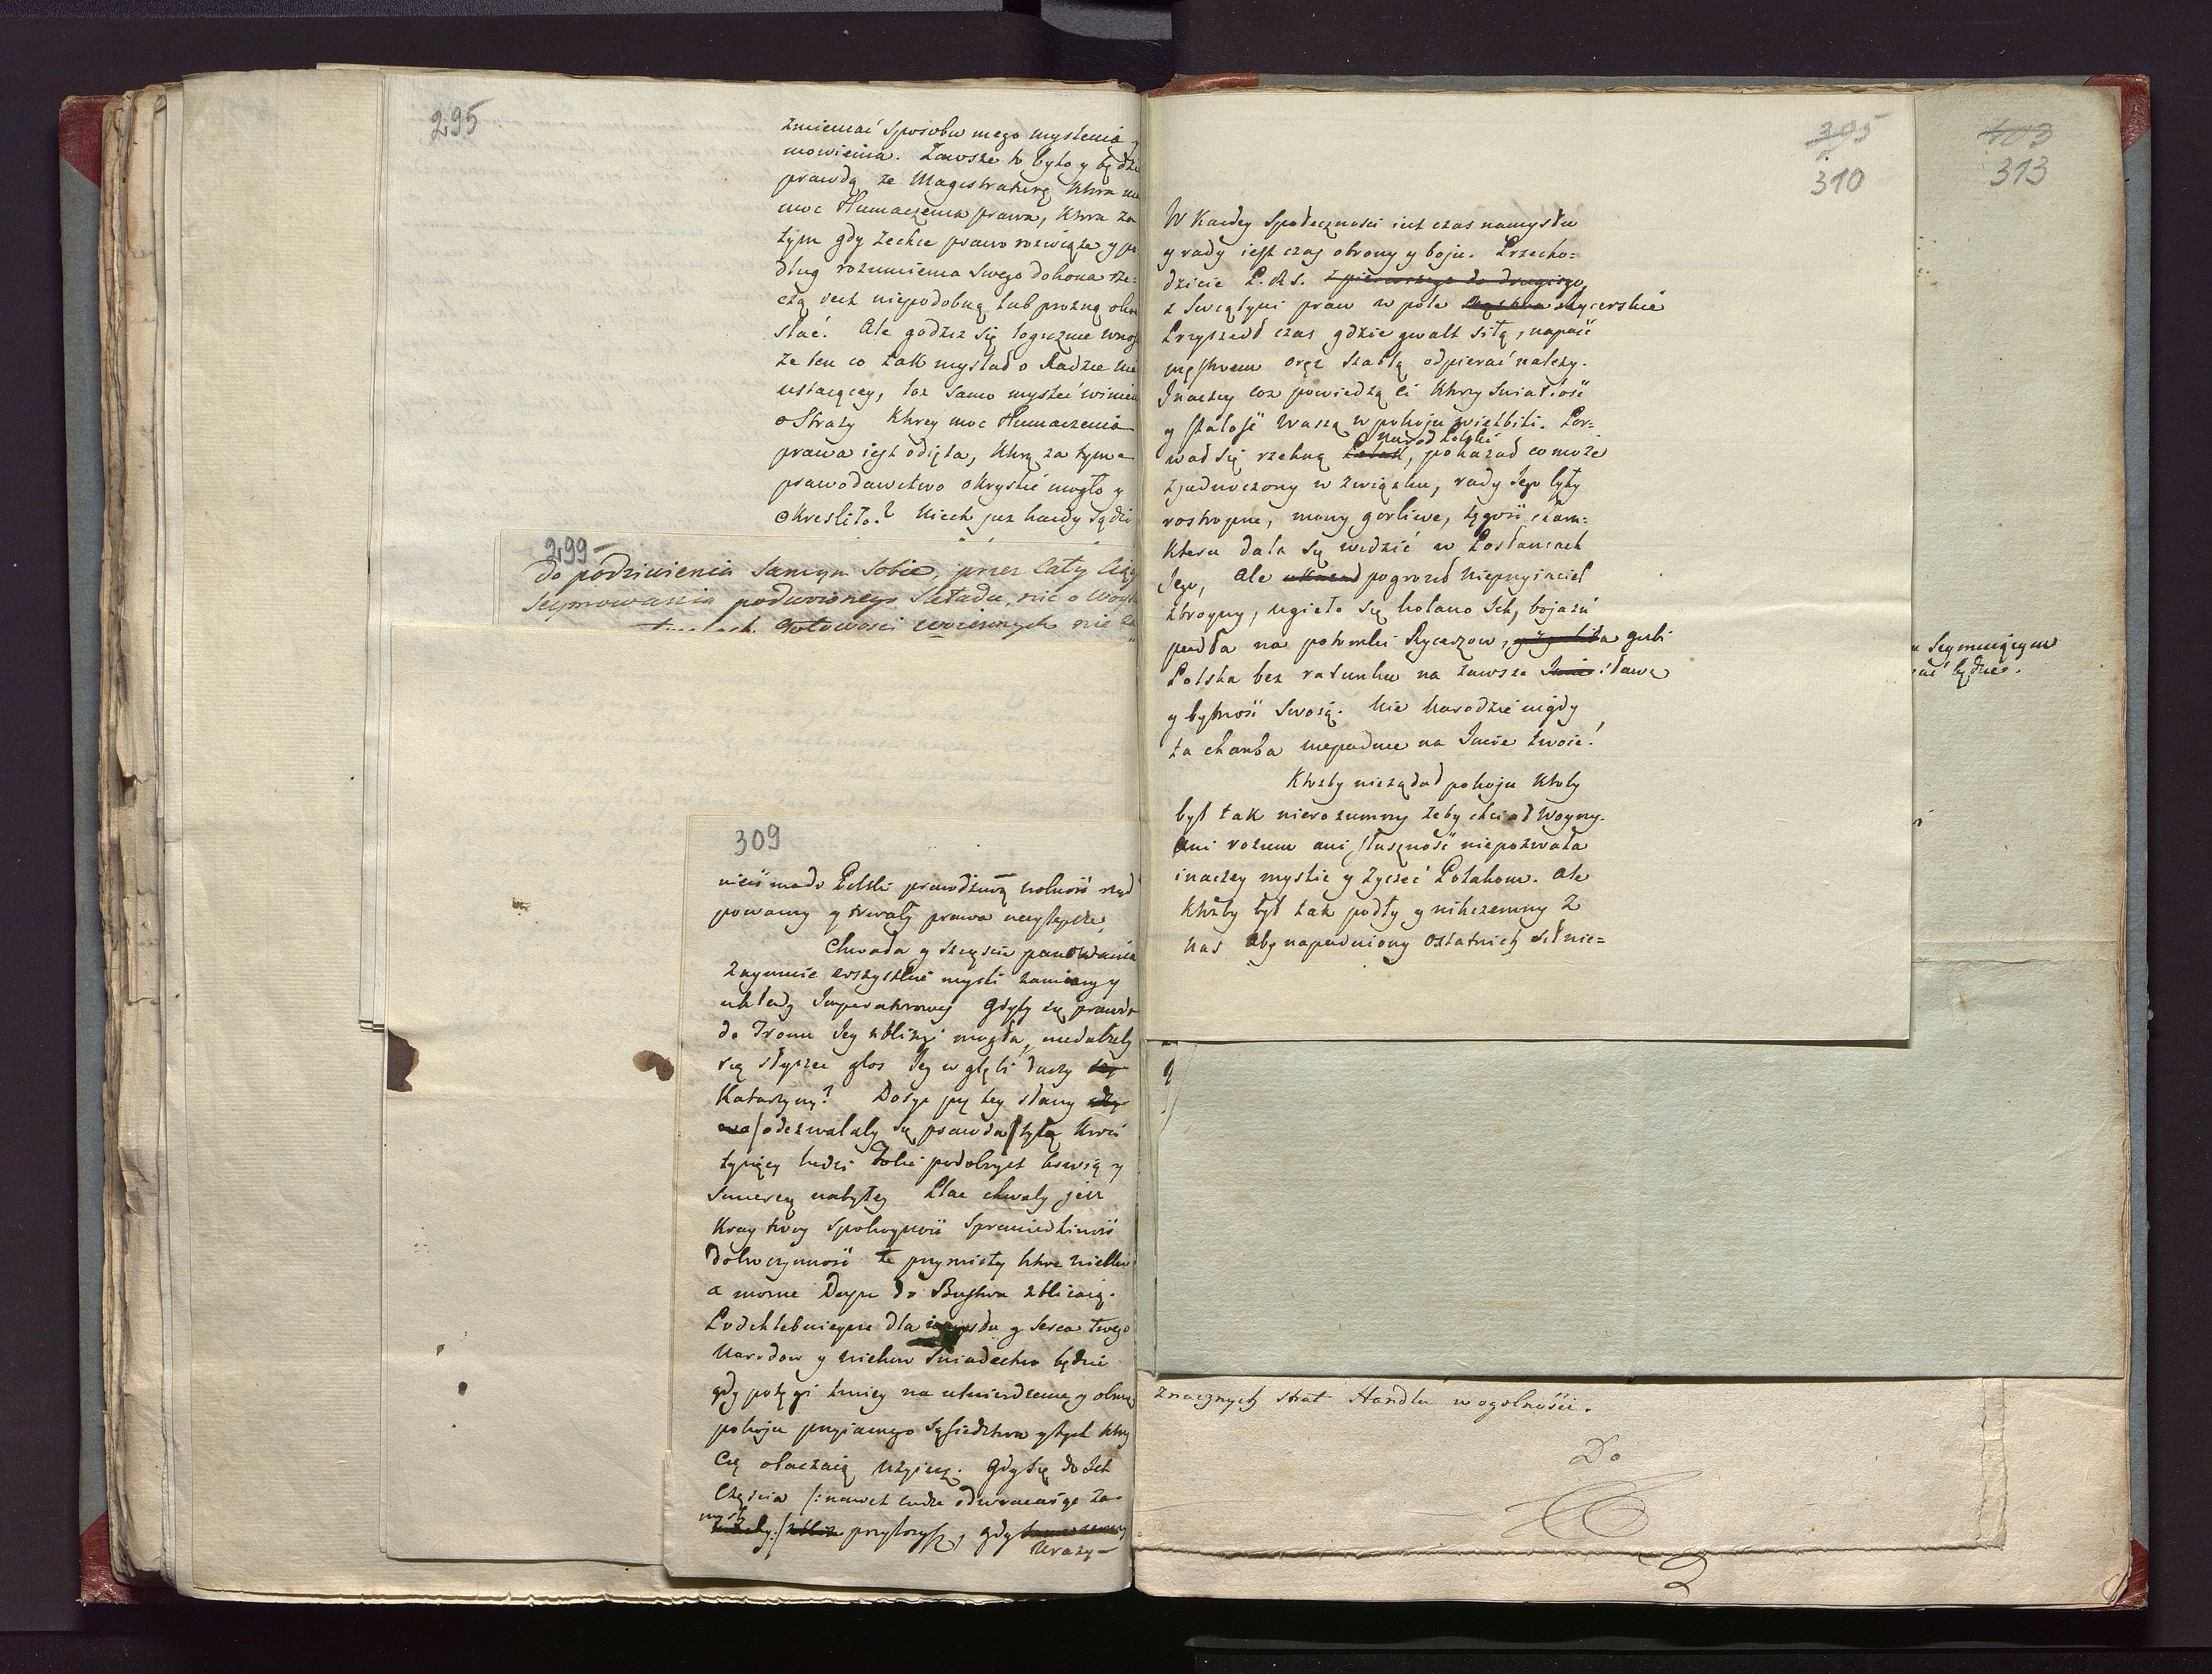 295
zmieniać sposobu mego myslenia y
mowienia. Zawsze to było y będzie
prawdą ze Magistraturę ktora ma
moc tłumaczenia prawa, ktora za
tym gdy zechce prawo rozwiąże y po
dług rozumienia swego dokona rze=
czą jest niepodobną lub prozną okre
slać. Ale godzisz się logicznie wnos
ze ten co tak myslał o Radzie nie
ustaiącey, toz samo mysleć winien
o Straży ktorey moc tłumaczenia
prawa iest odięta, ktorą za tym
prawodawctwo okryslić mogło y
okresliło? Niech juz kazdy sądzi
299
do podziwienia samym sobie, przez cały ciąg
seymowania podwoionego składu, nic o woysk
gotowości woiennych nie
309
Polski prawdziwą wolność rząd
powazny y trwały prawa
Chwała y szczęscie panowania
zaymuie wszystkie mysli zamiary y
układy Imperatorowey Gdyby się prawda
do Tronu Jey zblizyć mogła, niedałzeby
się słyszec głos Jey w głębi duszy
Katarzyny? Dosyc juz tey sławy
odezwałaby się prawda tylą krwi
tysięcy ludzi Tobie podobnych krwią y
smiercią nabytey Plac chwały jest
Kray twoy spokoyność sprawiedliwość
dobroczynność te przymioty ktore wielkie
a mocne Dusze do Bostwa zblizaią.
Podchlebnieysze dla y serca twego
Narodow y wiekow swiadectwo będzie
gdy potęgi twoiey na utwierdzenie y obronę
pokoju przyiaznego sąsiedztwa y tych ktorzy
Cię otaczaią uzyiesz. Gdy się do Ich
szczęscia /: nawet cudze odwracaiąc za-
mysły :/ przyłozysz, gdy
urazy-
305
310
W Kazdey społeczności iest czas namysłu
y rady iest czas obrony y boju. Przecho=
dzicie P. R. S. z pierwszego do drugiego,
z swiątyni praw w pole rycerskie
Przyszedł czas gdzie gwałt siłą, napaść
męstwem oręz szablą odpierać nalezy.
Inaczey coz powiedzą ci ktorzy swiatłość
y stałość waszą w pokoju wielbili. Por=
wał się rzekną Polak, naród Polski pokazał co moze
zjednoczony w związku, rady Jego były
rostropne, mowy gorliwe, tęgość charak=
kteru dała się widzić w Posłancach
Jego, Ale ukazał pogroził nieprzyiaciel
zbroyny, ugieło się kolano Ich, bojazń
padła na potomki Rycerzow, gubi
Polska bez ratunku na zawsze Imie sławę
y bytność swoią. Nie Narodzie nigdy
ta chanba niepadnie na Imie twoie!
Ktozby nieządał pokoju ktoby
był tak nierozumny zeby chciał Woyny.
Ani rozum ani słuszność niepozwala
inaczey myslić y zyczeć Polakom. Ale
ktozby był tak podły y nikczemny z
nas aby napadniony ostatnich sił nie=
403
313
Seymuiącym
będzie.
znacznych strat Handlu w ogolności.
Do